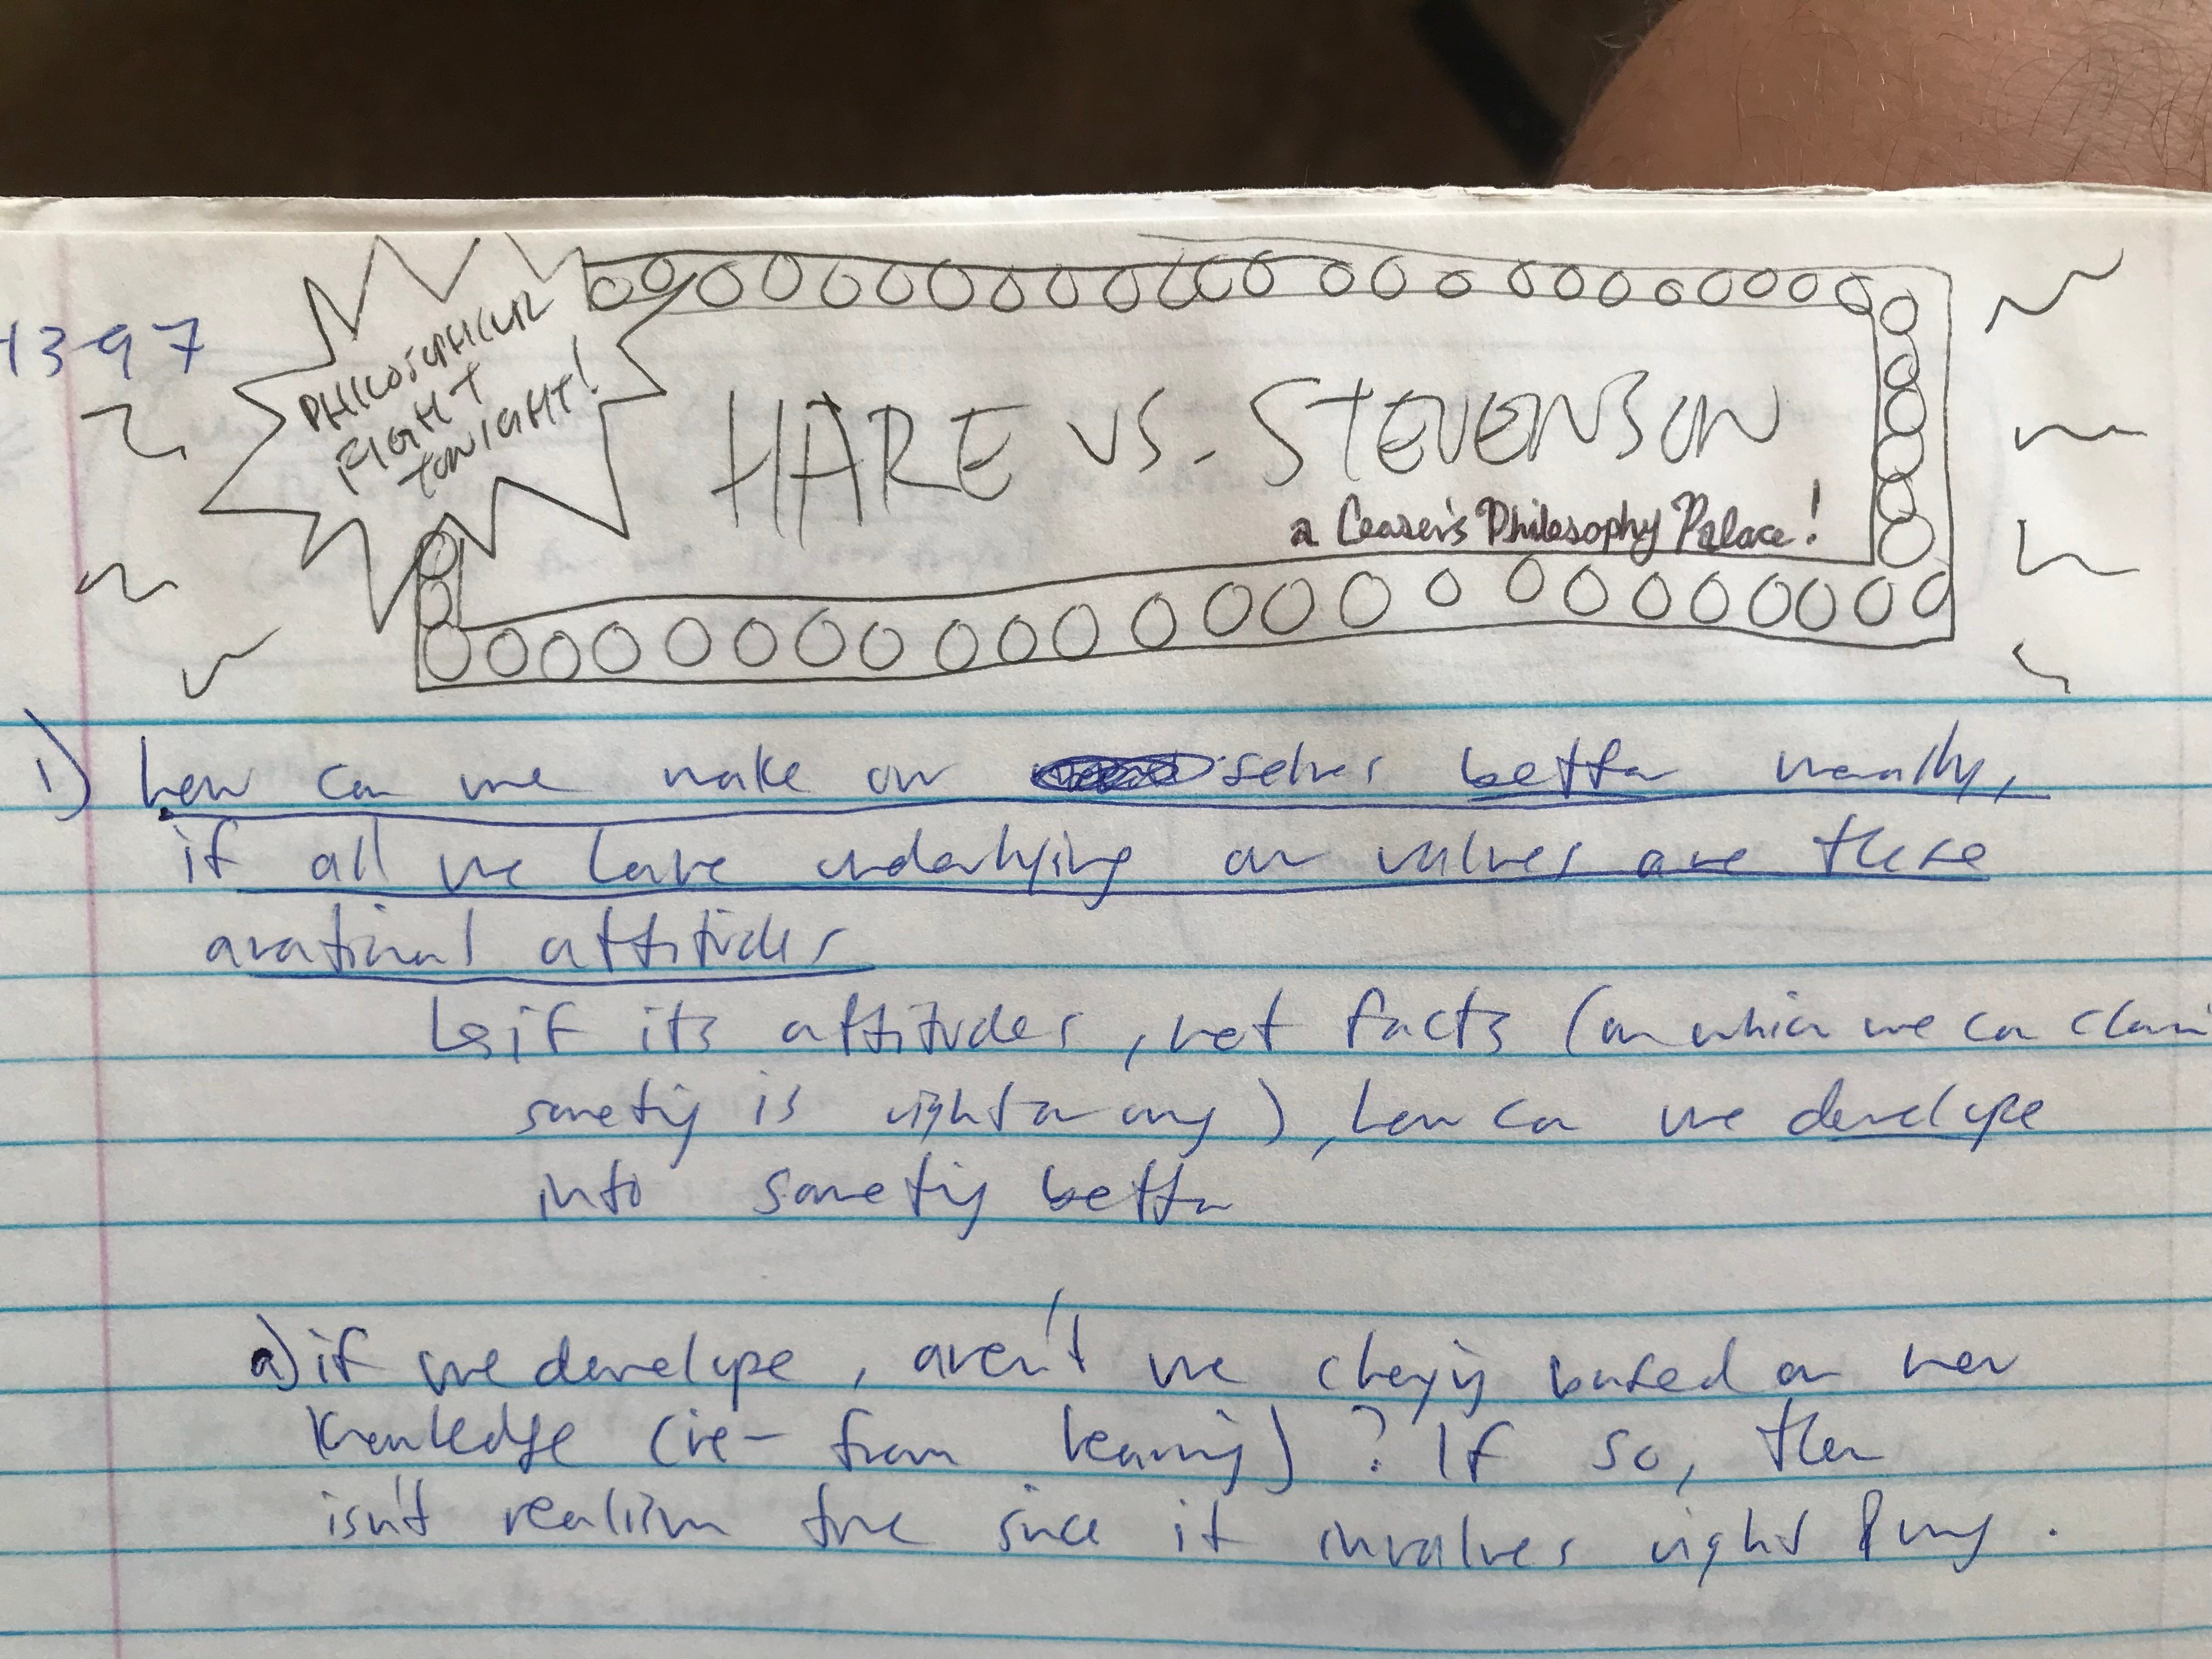 1397
PHILOSOPHICAL
FIGHT
TONIGHT!
HARE VS. STEVENSON
a Ceaser's Philosophy Palace!
1) how can we make our selves better morally,
if all we have underlying our values are these
arational attitudes
if its attitudes, not facts (on which we can claim
something is right or wrong), how can we develope
into something better
a) if we develope, aren't we changing based on new
knowledge (ie- from learning)? If so, then
isn't realism true since it involves right & wrong.